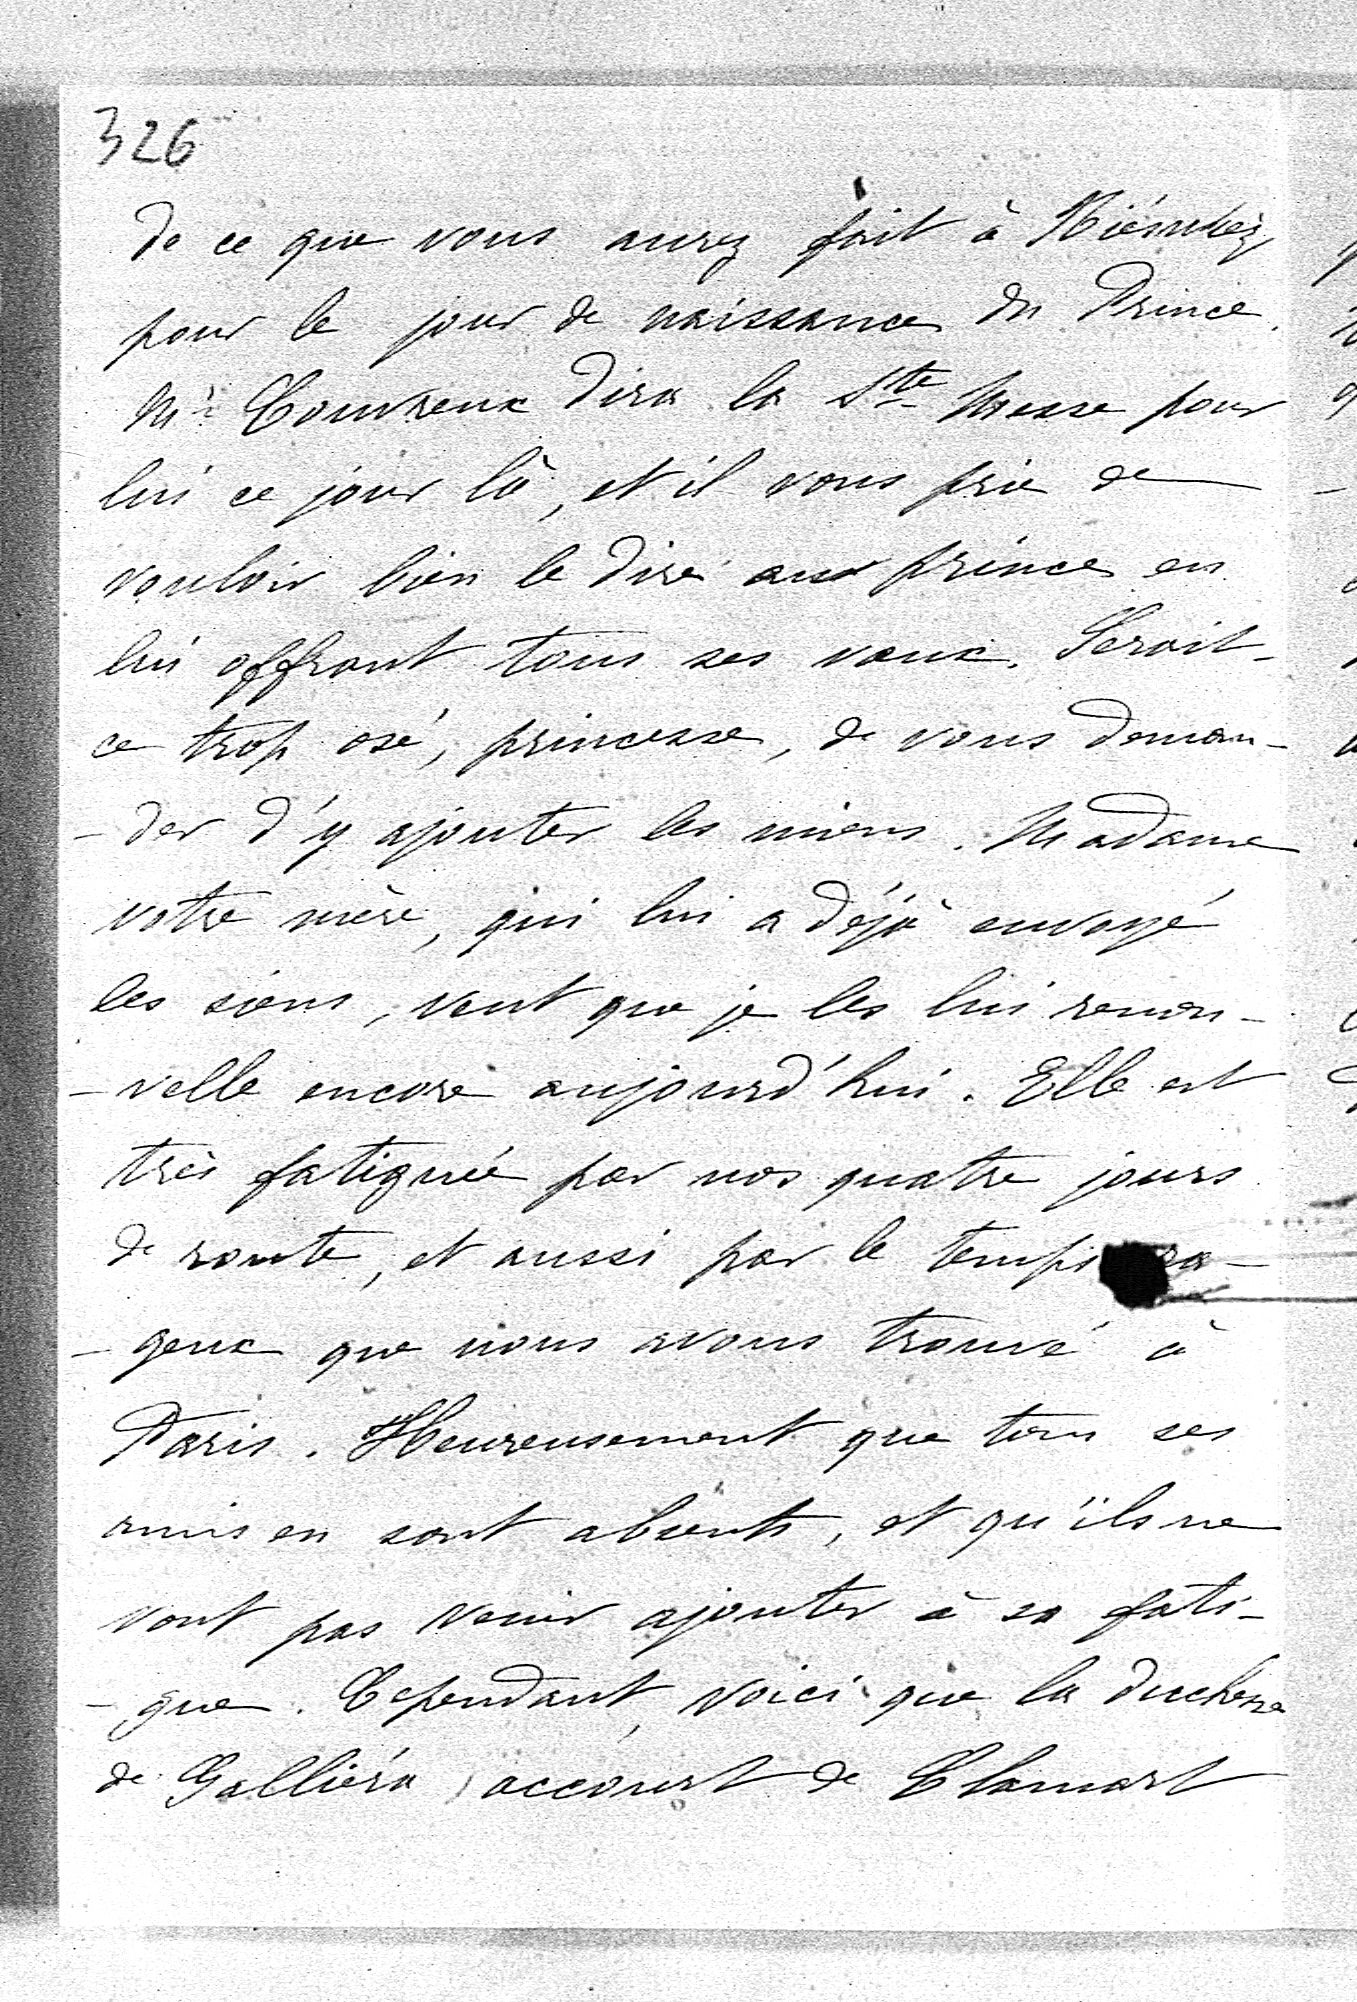 326
de ce que vous aurez fait à Niéswiez
pour le jour de naissance du Prince.
Mr Couvreux dira la Ste Messe pour
lui ce jour là, et il vous prie de
vouloir bien le dire au prince en
lui offrant tous ses vœux. Serait-
ce trop osé, princesse, de vous deman-
-der d'y ajouter les miens. Madame
votre mère, qui lui a déjà envoyé
les siens, veut que je les lui renou-
-velle encore aujourd'hui. Elle est
très fatiguée par nos quatre jours
de route, et aussi par le temps ora-
-geux que nous avons trouvé à
Paris. Heureusement que tous ses
amis en sont absents, et qu'ils ne
vont pas venir ajouter à sa fati-
-gue. Cependant, voici que la duchesse
de Galliéra, accourt de Clamart